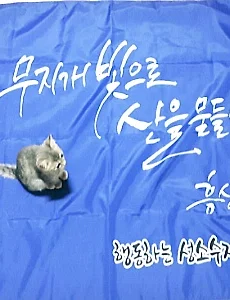 무지개 빛으로
산을 물들
흥
행동하는 성소수자